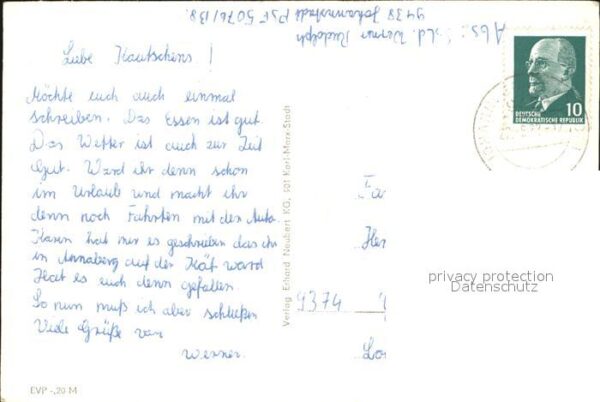 Abs: Sold. Werner Rudolph
9438 Johannstadt PSF 5076/138.
DEUTSCHE
DEMOKRATISCHE REPUBLIK
10
Liebe Kautschens!
Möchte euch auch einmal
schreiben. Das Essen ist gut.
Das Wetter ist auch zur Zeit
Gut. Ward ihr denn schon
im Urlaub und macht ihr
denn noch Fahrten mit den Auto.
Karen hat mir es geschrieben das ihr
in Annaberg auf der Kät ward
Hat es euch denn gefallen
So nun muß ich aber schließen
Viele Grüße von
Werner.
Verlag Erhard Neubert KG, 501 Karl-Marx-Stadt
Fa
Her
9374
Lo
privacy protection
Datenschutz
EVP -,20 M